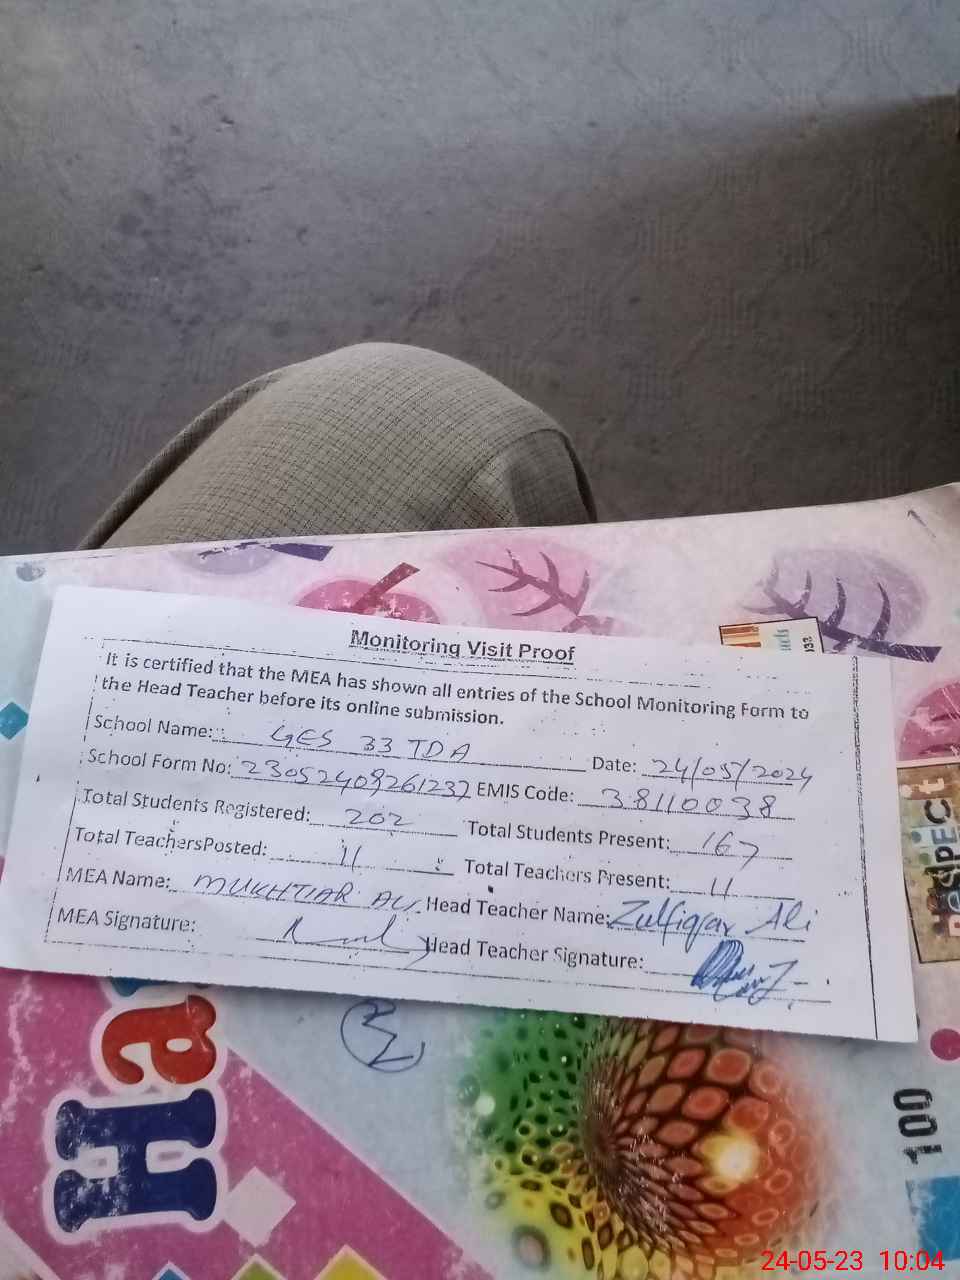 Monitoring Visit Proof
It is certified that the MEA has shown all entries of the School Monitoring Form to
the Head Teacher before its online submission.
School Name: GES 33 TDA Date: 24/05/2024
School Form No: 23052409261237 EMIS Code: 38110038
Total Students Registered: 202 Total Students Present: 167
Total TeachersPosted: 11 Total Teachers Present: 11
MEA Name: MUKHTIAR ALI Head Teacher Name: Zulfiqar Ali
MEA Signature: Head Teacher Signature:
Ha
100
24-05-23 10:04